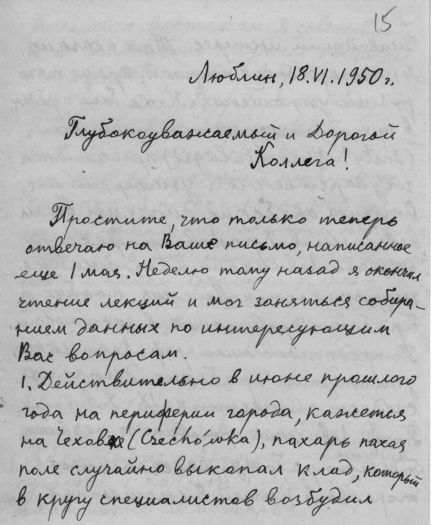 15
Люблин, 18.VI.1950 г.
Глубокоуважаемый и Дорогой
Коллега!
Простите, что только теперь
отвечаю на Ваше письмо, написанное
еще 1 мая. Неделю тому назад я окончил
чтение лекций и мог заняться собира-
нием данных по интересующим
Вас вопросам.
1. Действительно в июне прошлого
года на периферии города, кажется
на Чеховке (Czechówka), пахарь пахая
поле случайно выкопал клад, который
в кругу специалистов возбудил